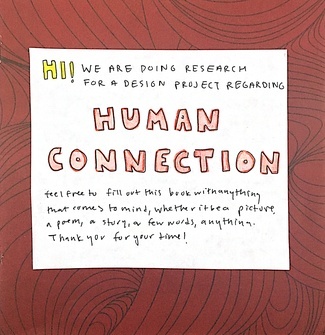 HI! WE ARE DOING RESEARCH
FOR A DESIGN PROJECT REGARDING
HUMAN
CONNECTION
feel free to fill out this book with anything
that comes to mind, whether it be a picture,
a poem, a story, a few words, anything.
Thank you for your time!